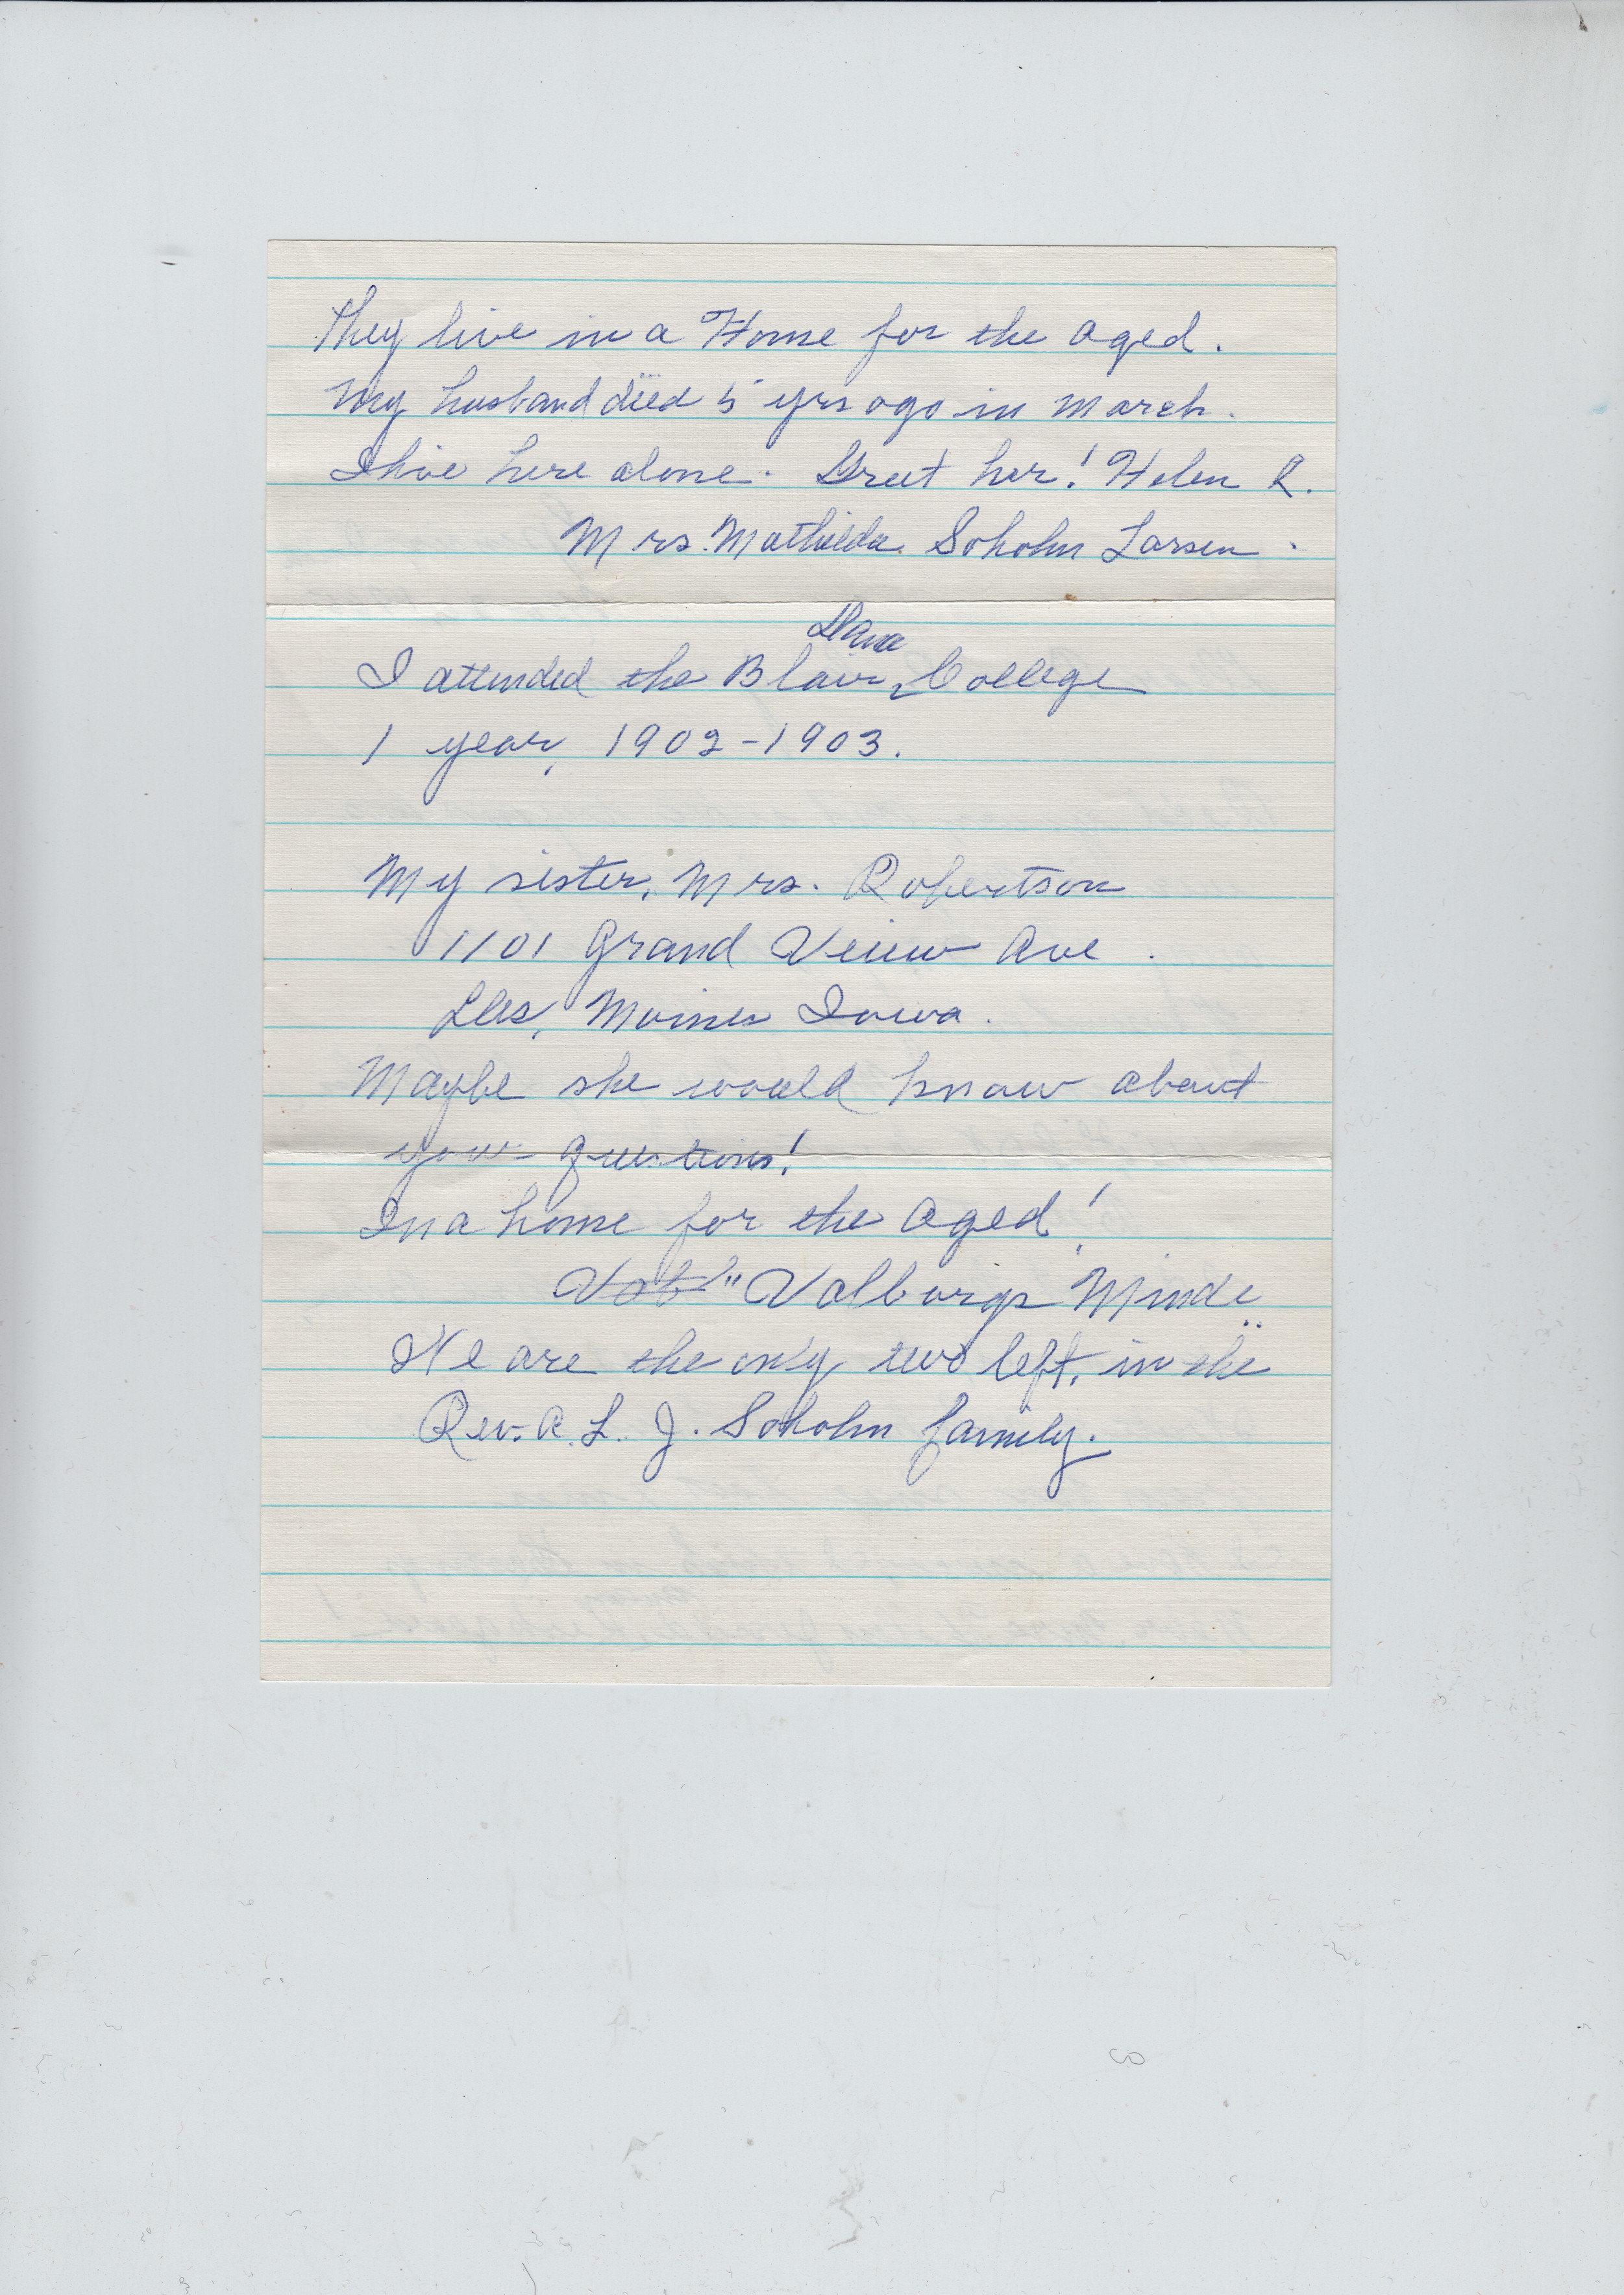 They live in a Home for the aged.
My husband died 5 yrs ago in March.
I live here alone. Greet her! Helen R.
Mrs. Mathilda Soholm Larsen.
Dana
I attended the Blair, College
1 year, 1902-1903.
My sister, Mrs. Robertson
1101 Grand View Ave.
Des, Moines Iowa.
Maybe she would know about
your questions!
In a home for the aged!
Valb "Valborgs Minde"
We are the only two left, in the
Rev. A. L. J. Soholm family.